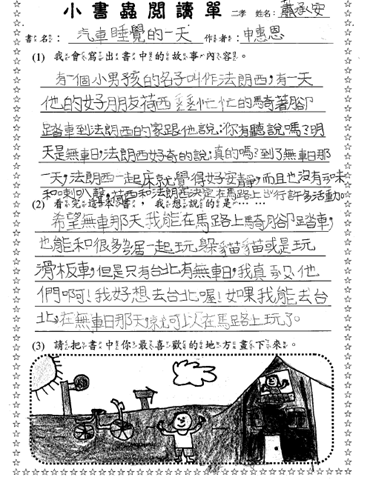 小書蟲閱讀單 二孝 姓名：戴承安
書名：汽車睡覺的一天 作者：申惠恩
(1) 我會寫出書中的故事內容。
有一個小男孩的名子叫作法朗西，有一天
他的好朋友荷西匆匆忙忙的騎著腳
踏車到法朗西的家跟他說：你有聽說嗎？明
天是無車日，法朗西好奇的說：真的嗎？到了無車日那
一天，法朗西一起床就覺得好安靜，而且也沒有叭
和喇叭聲，荷西和法朗西決定在馬路上出行許多活動。
(2) 看完這本書，我想說的是…
希望無車那天我能在馬路上騎腳踏車，
也能和很多多一起玩躲貓貓或是玩
滑板車，但是只有台北有無車日，我真 他
們啊！我好想去台北喔！如果我能去台
北，在無車日那天，就可以在馬路上玩了。
(3) 請把書中你最喜歡的地方畫下來。